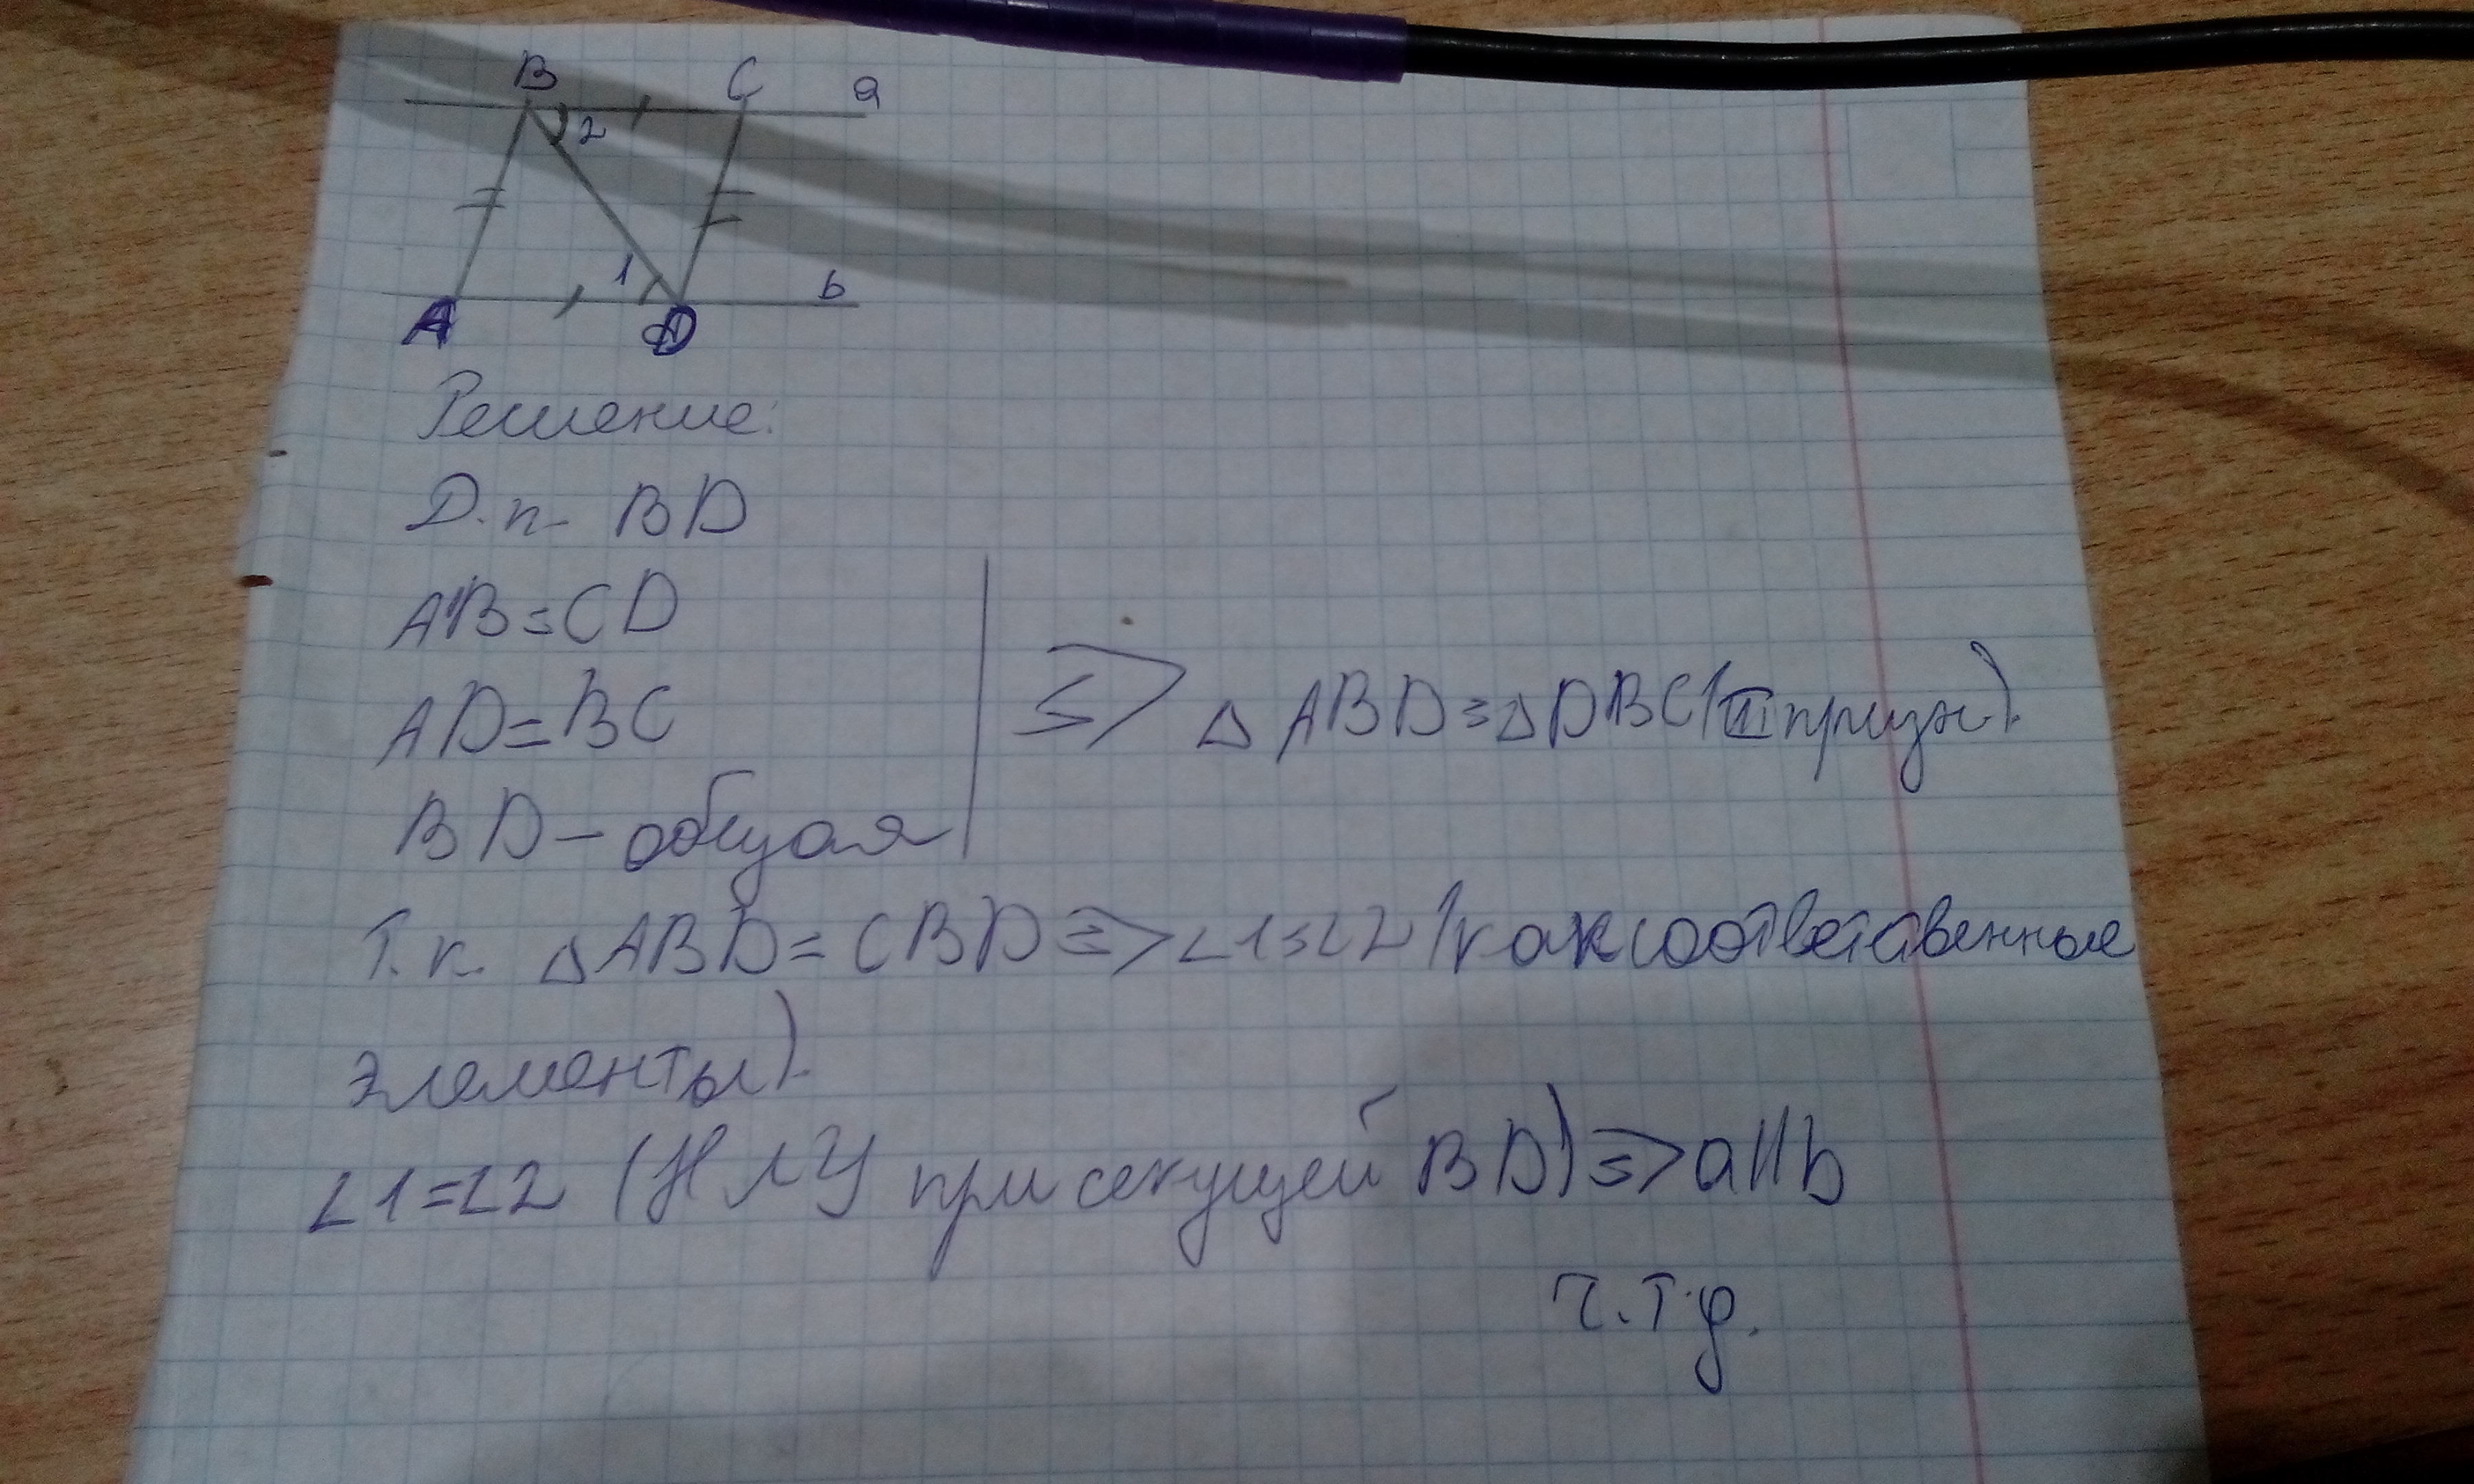 B C a
2
1 b
A D
Решение:
Д.п - BD
AB=CD
AD=BC
BD – общая
=> △ ABD=△DBC(III призн).
Т.к. △ABD=CBD=>∠1=∠2 (как соответственные
элементы).
∠1=∠2 (НЛУ при секущей BD)=>a||b
ч.т.д.